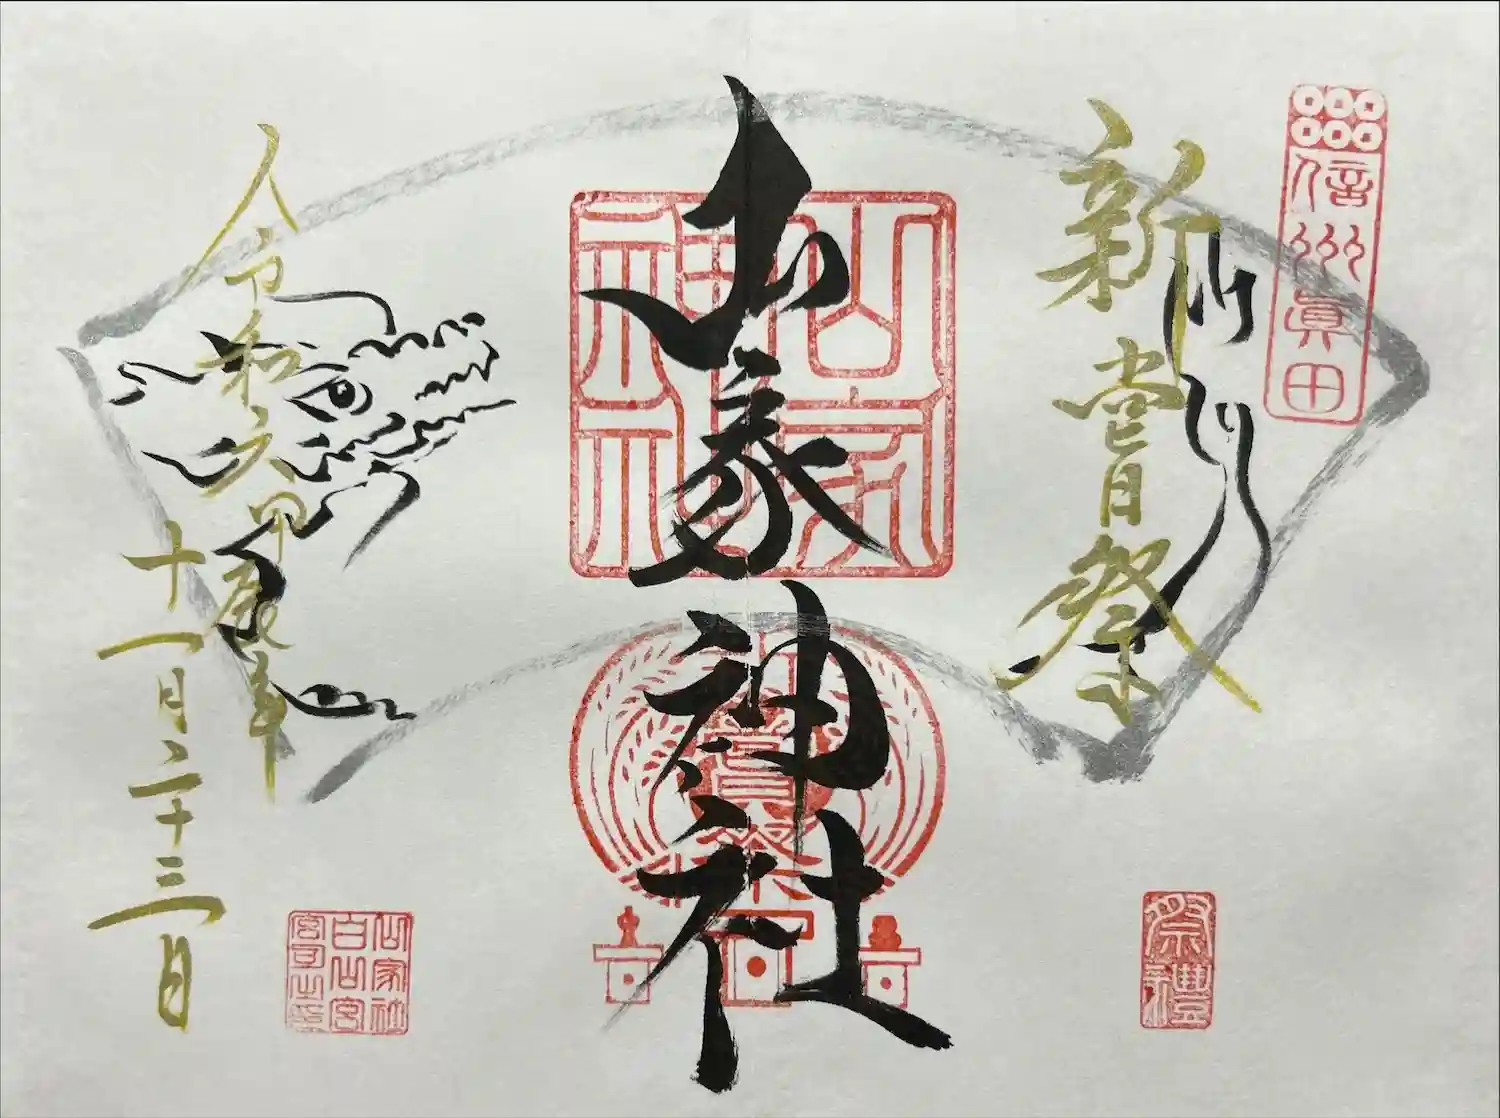 信州眞田
新嘗祭
山家神社
山家神社
新嘗祭
祭禮
令和六甲辰年
十一月二十三日
山家神社
白山宮
宮司之印